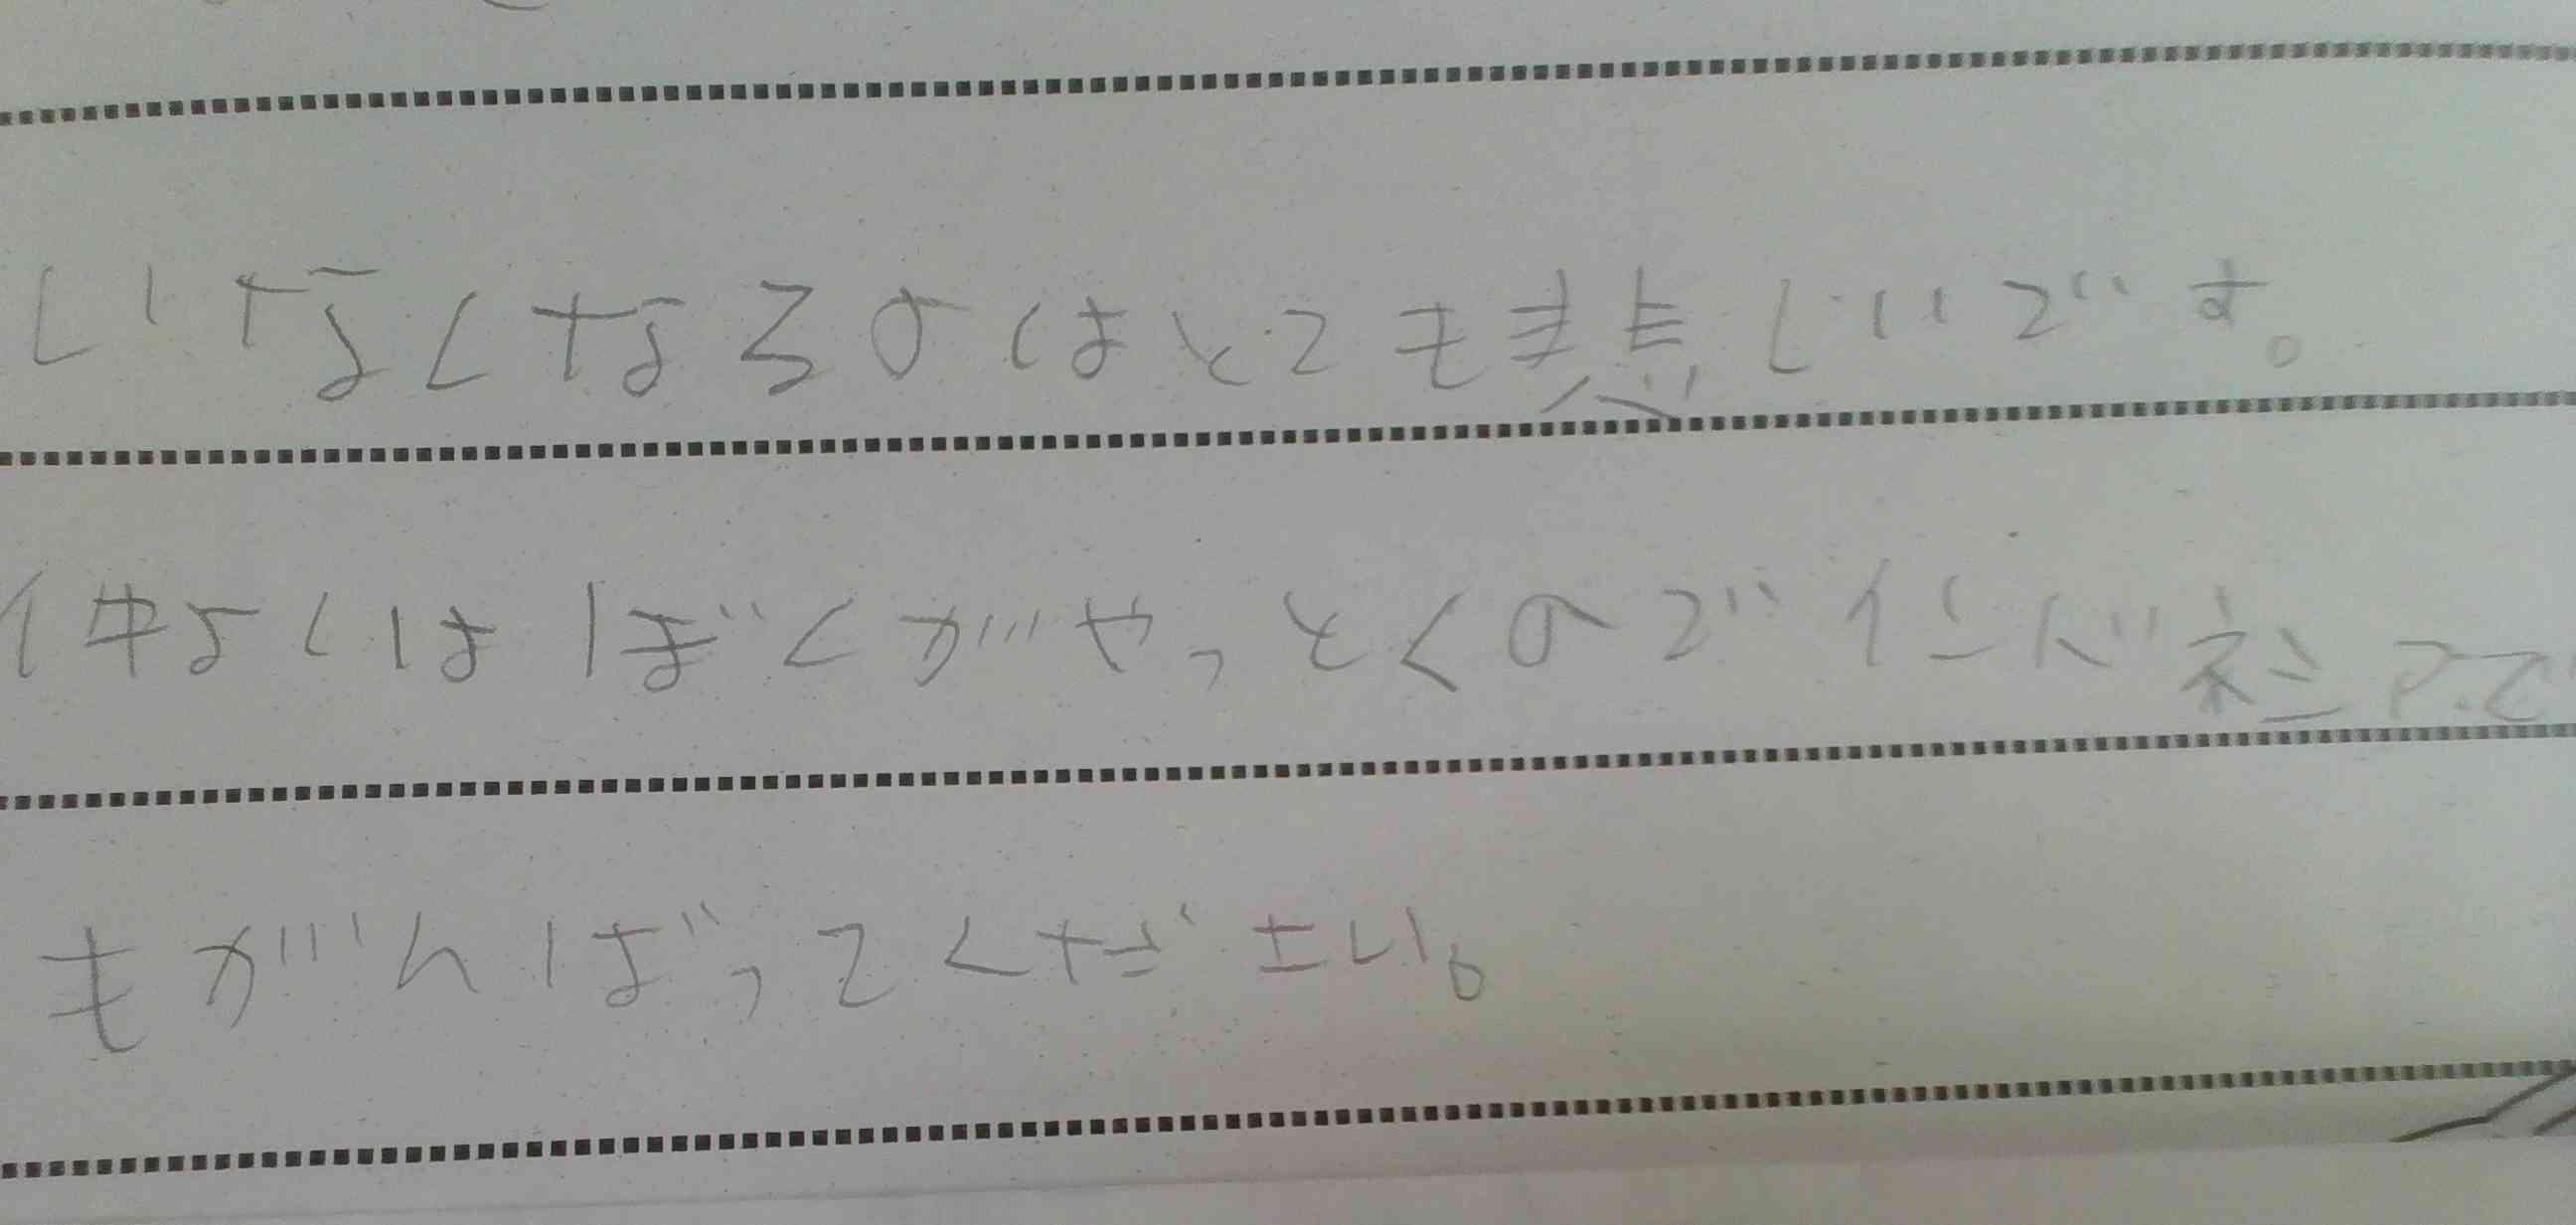 いなくなるのはとても悲しいです。
仲よくはぼくがやっとくので
もがんばってください。